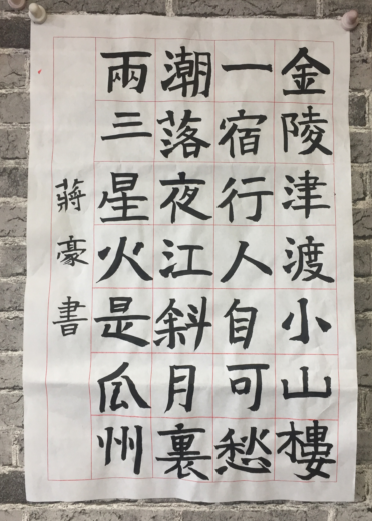 金陵津渡小山樓
一宿行人自可愁
潮落夜江斜月裏
兩三星火是瓜州
蔣豪書